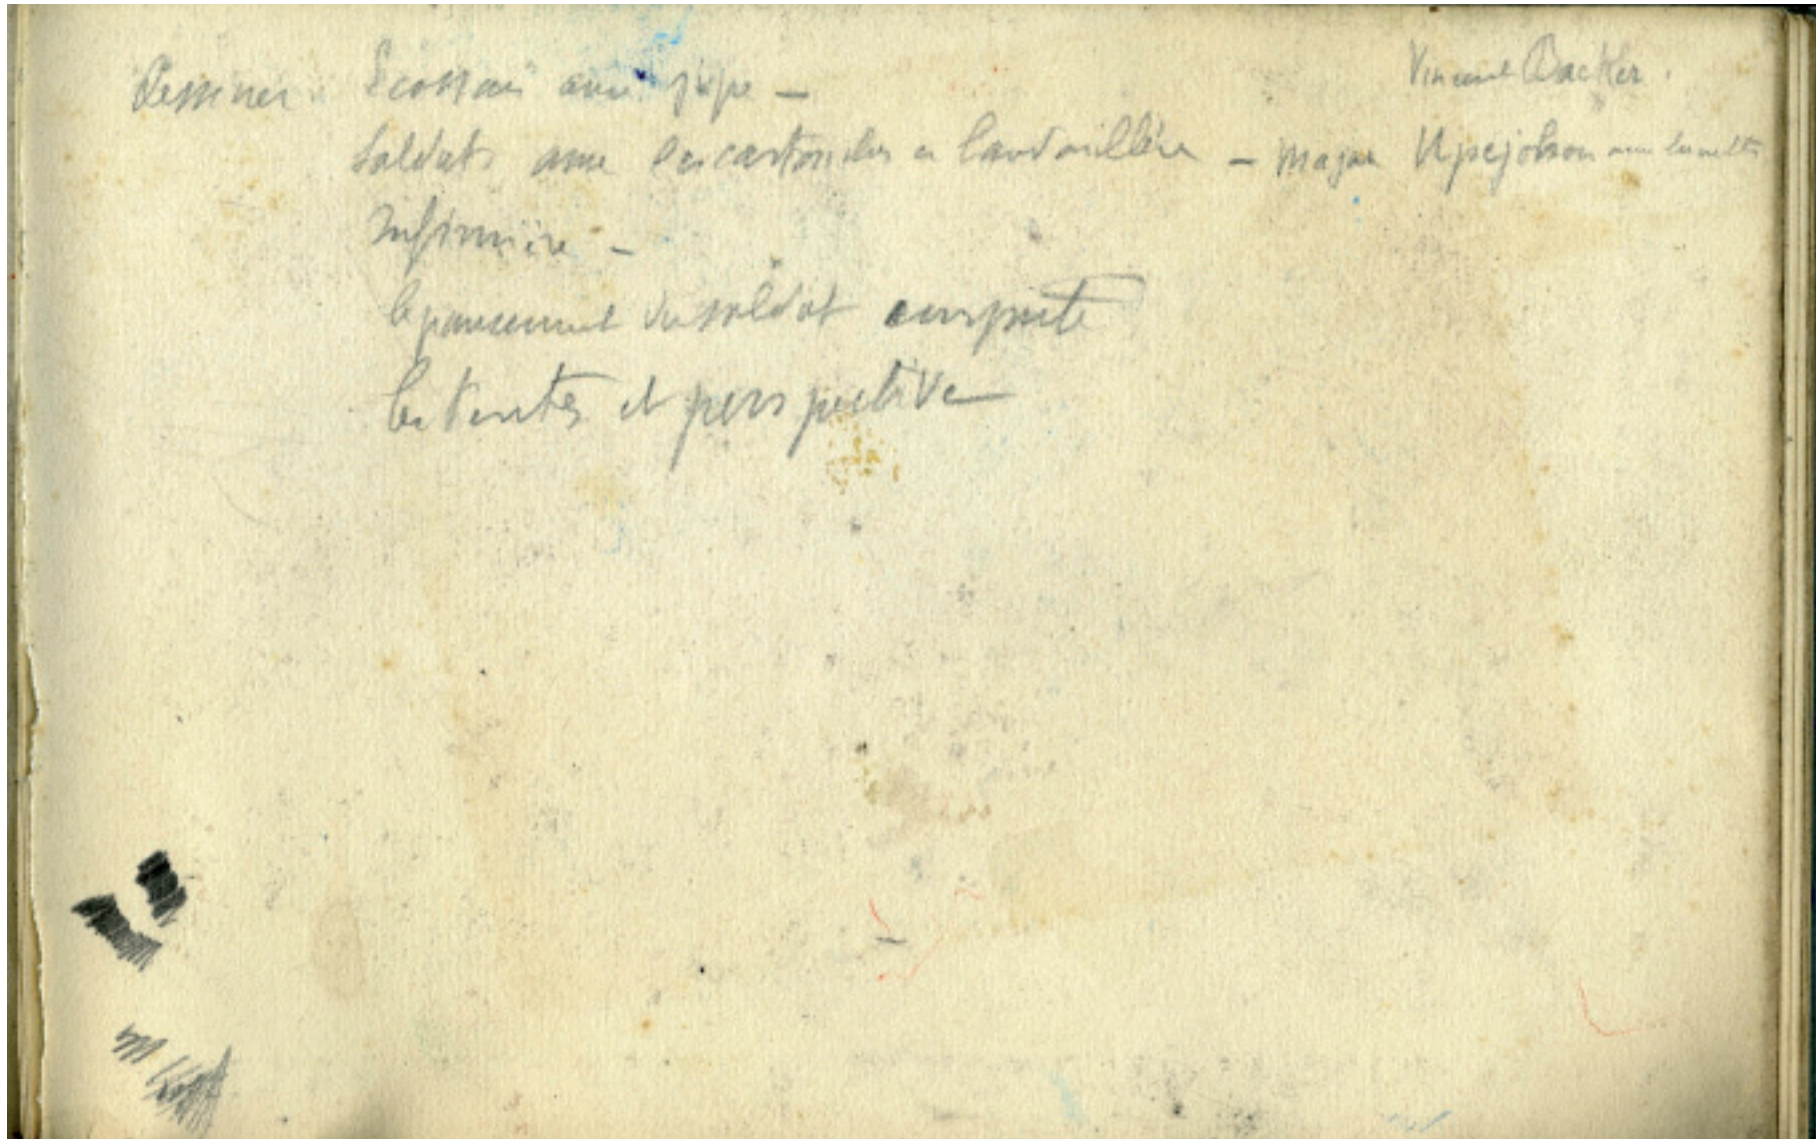 Vincent Backer.
Dessiner Ecossais avec jupe –
Soldats avec des cartouches en bandoullière – Major avec lunettes
Infirmière –
le pansement du soldat
les tentes et perspective